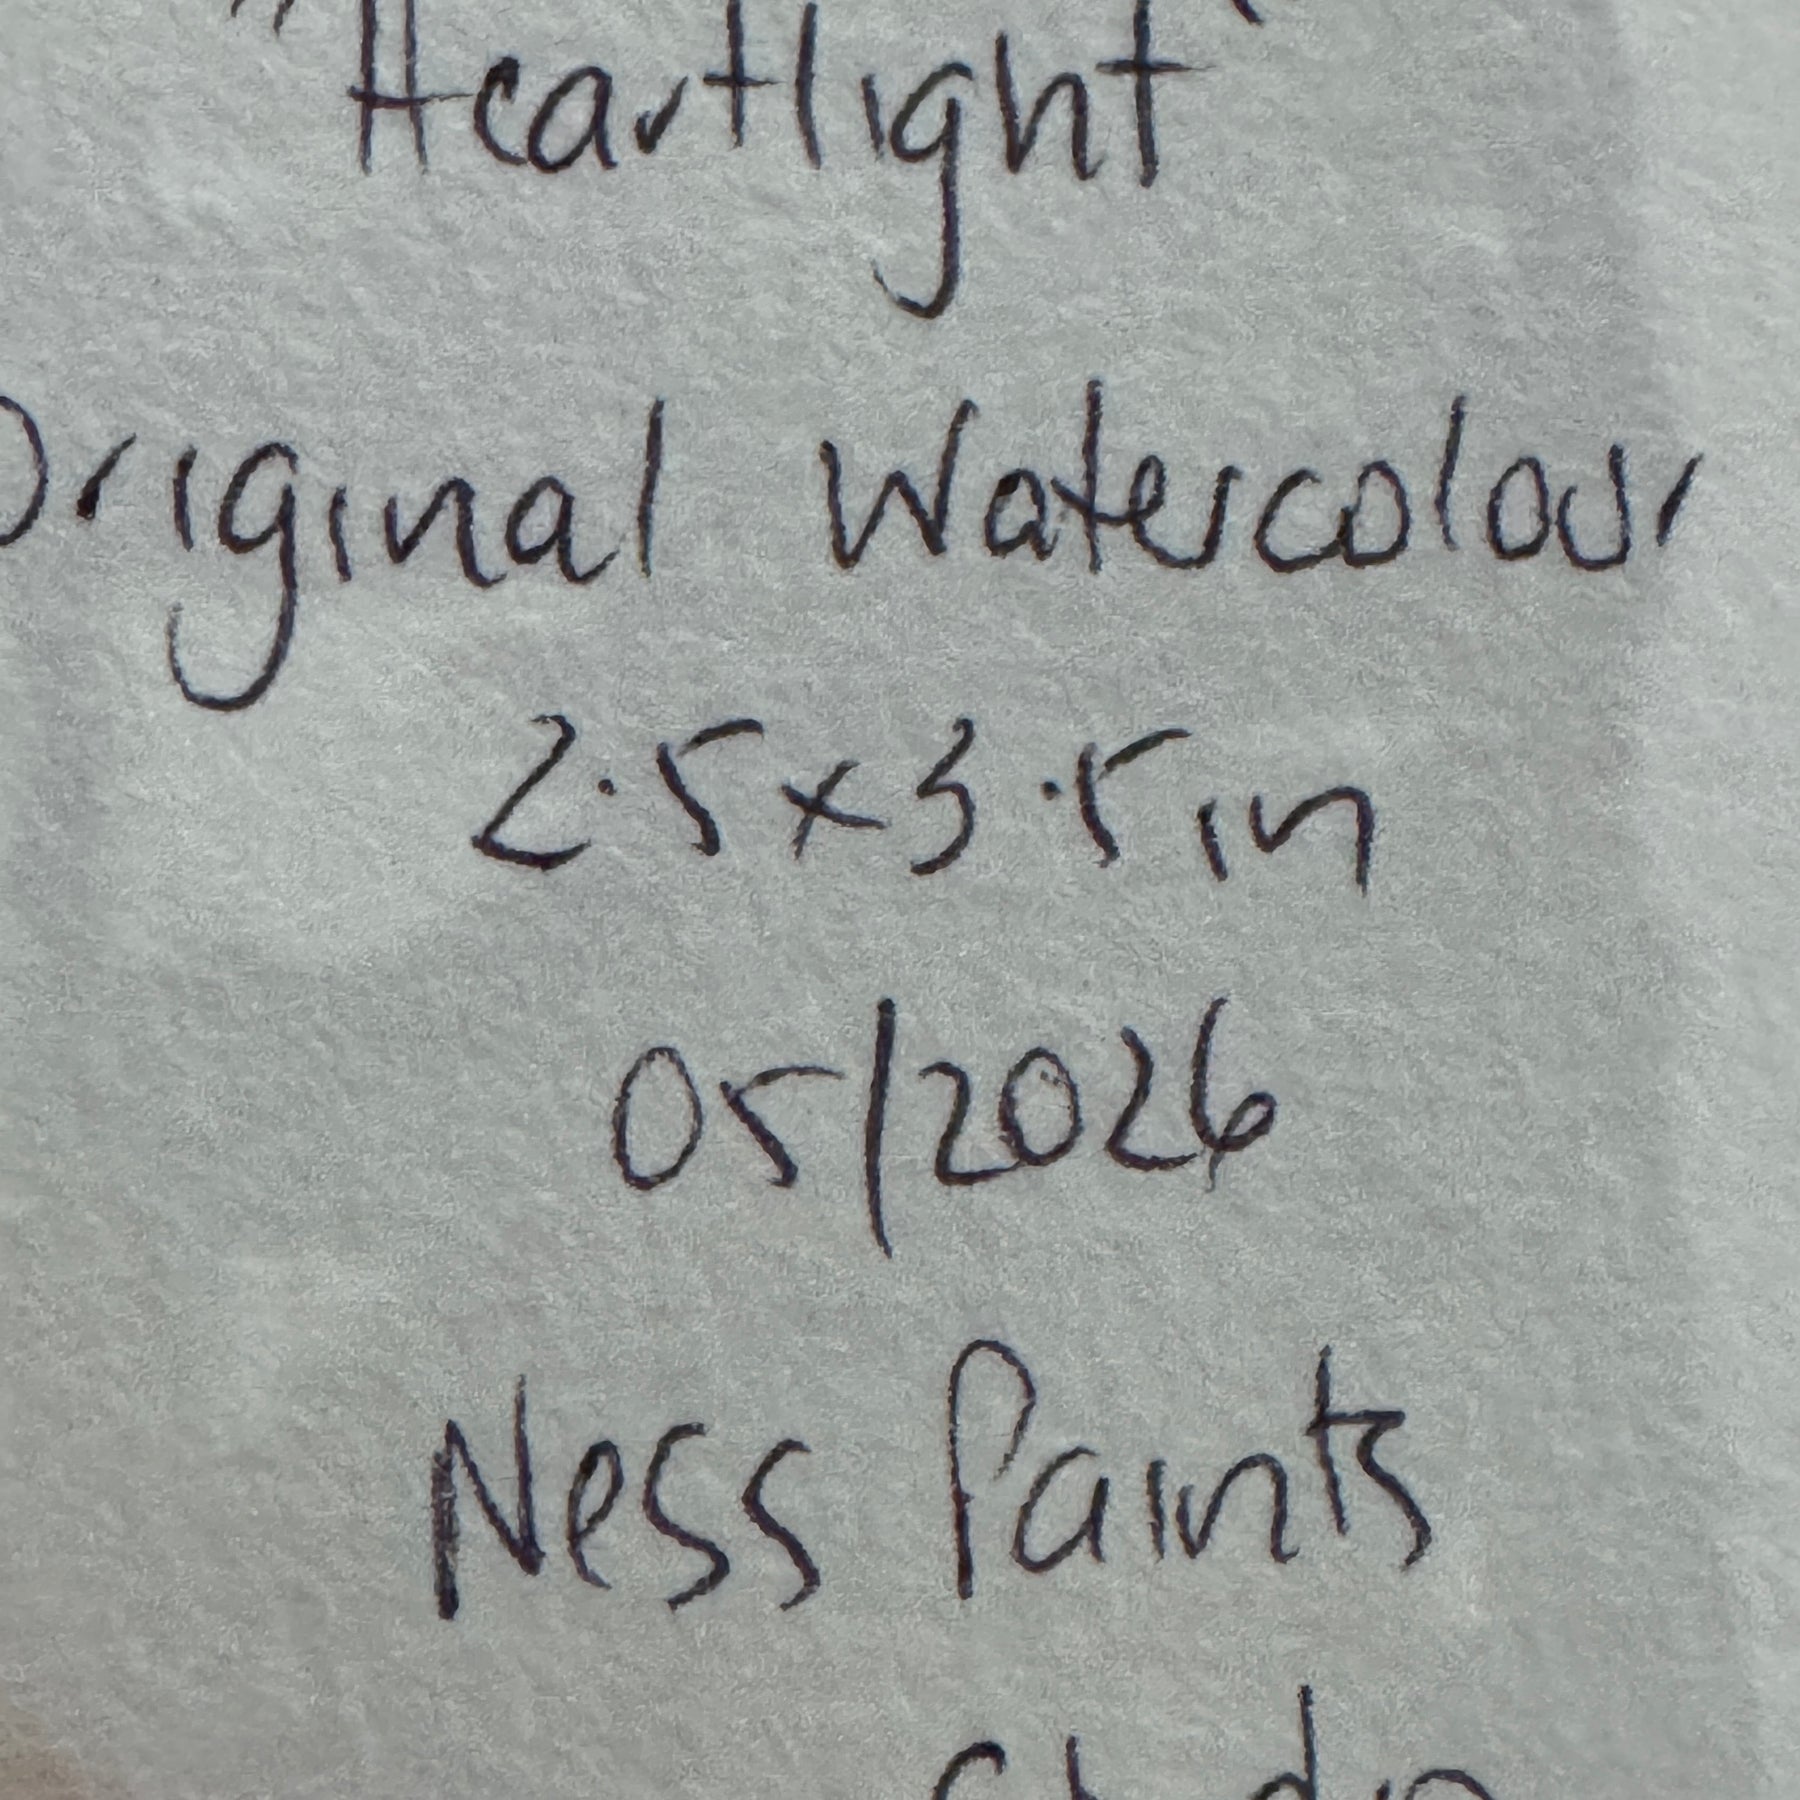 "Heartlight"
Original Watercolour
2.5x3.5in
05/2026
Ness Paints